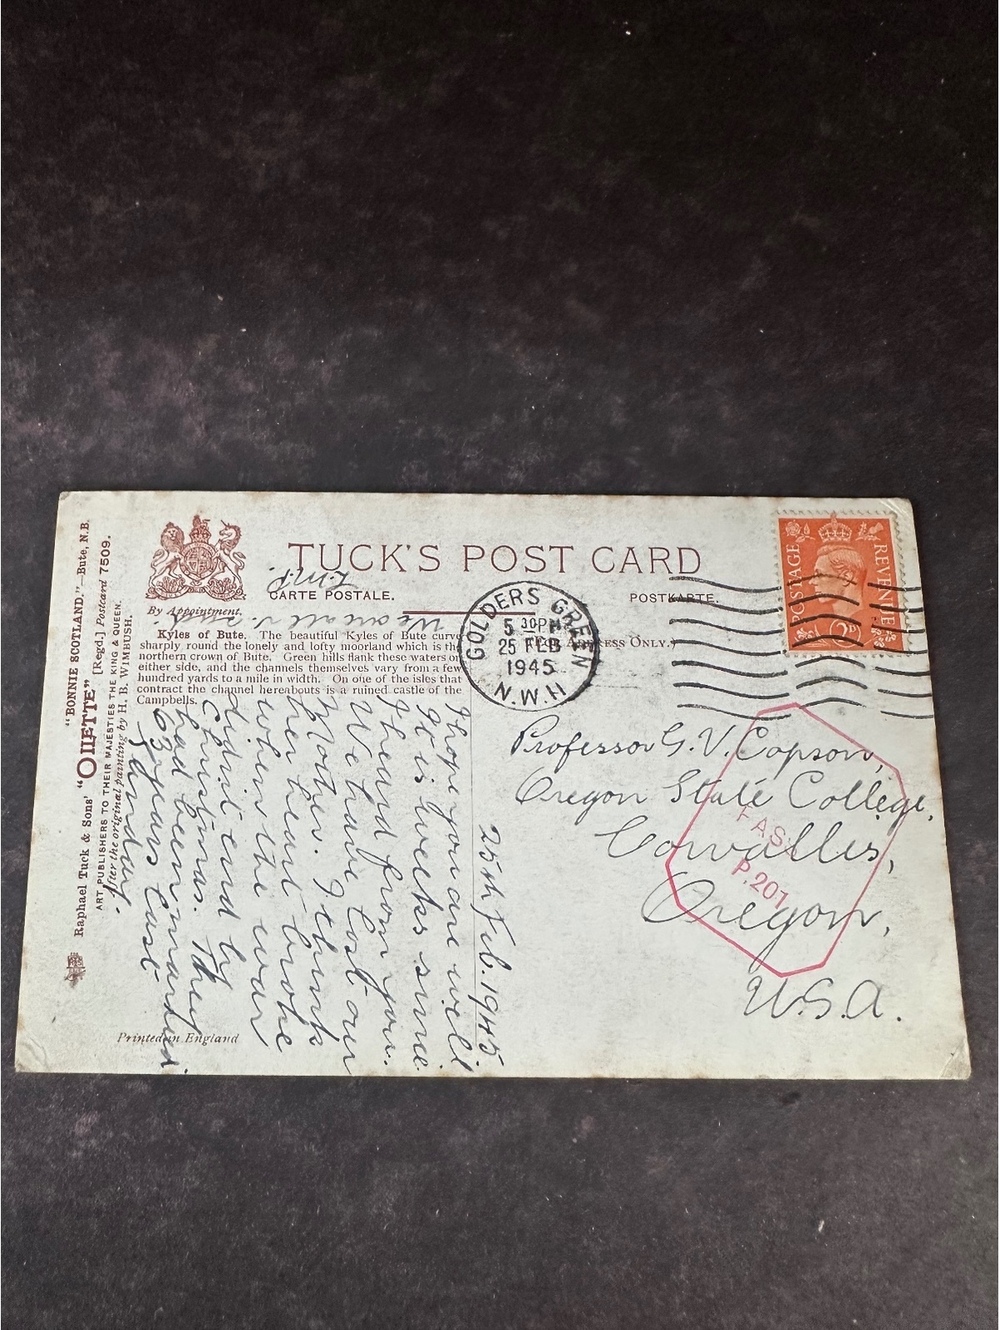 TUCK'S POST CARD
CARTE POSTALE.
POSTKARTE.
By Appointment.
Kyles of Bute. The beautiful Kyles of Bute curve
sharply round the lonely and lofty moorland which is the
northern crown of Bute. Green hills flank these waters on
either side, and the channels themselves vary from a few
hundred yards to a mile in width. On one of the isles that
contract the channel hereabouts is a ruined castle of the
Campbells.
"BONNIE SCOTLAND."—Bute, N.B.
Raphael Tuck & Sons' "OILETTE" [Regd.] Postcard 7509.
ART PUBLISHERS TO THEIR MAJESTIES THE KING & QUEEN.
After the original painting by H. B. WIMBUSH.
Printed in England
GOLDERS GREEN
5 30PM
25 FEB
1945
N.W.11
ADDRESS ONLY.)
POSTAGE REVENUE
2D
Professor G. V. Copson,
Oregon State College,
Corvallis,
Oregon,
U.S.A.
PASS
P.201
25th Feb. 1945
I hope you are well
It is weeks since
I heard from you.
We have lost our
Mother. I think
her heart broke
when the war
didn't end by
Christmas. They
had been married
63 years last
Sunday.
We are all